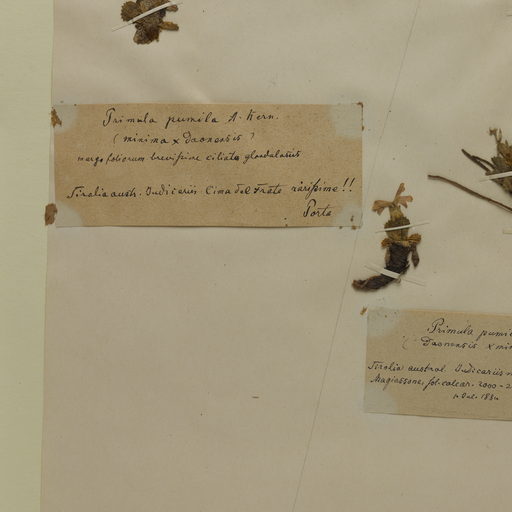 Primula pumila A. Kern.
(minima x Daonensis ?
margo foliorum brevissime ciliato glandulatus
Tirolia austr. Judicariis Cima del Frate rarissime!!
Porta
Primula pumi
Daonensis x min
Tirolia austral. Judicariis
Magiassone, sol. calcar. 2000 - 2
Jul. 188